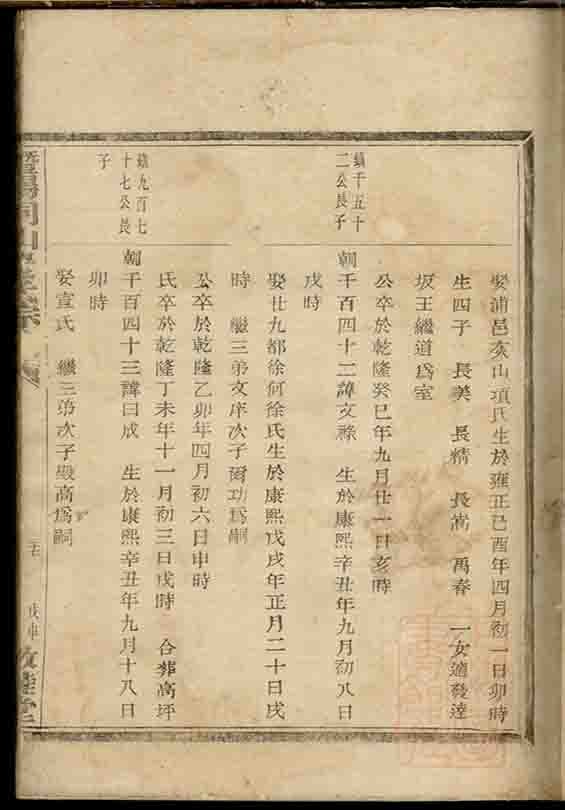 娶浦邑亥山項氏生於雍正己酉年四月初一日卯時
生四子　長美　長精　長嵩　萬春　一女適發達
坂王繼道為室
公卒於乾隆癸巳年九月廿一日亥時
鎮千五十
二公長子
朝千百四十二諱文祿　生於康熙辛丑年九月初八日
戌時
娶廿九都徐何徐氏生於康熙戊戌年正月二十日戌
時　繼三弟文序次子爾功為嗣
公卒於乾隆乙卯年四月初六日申時
氏卒於乾隆丁未年十一月初三日戌時　合葬高坪
鎮九百七
十七公長
子
朝千百四十三諱曰成　生於康熙辛丑年九月十八日
卯時
娶宣氏　繼三弟次子殿高為嗣